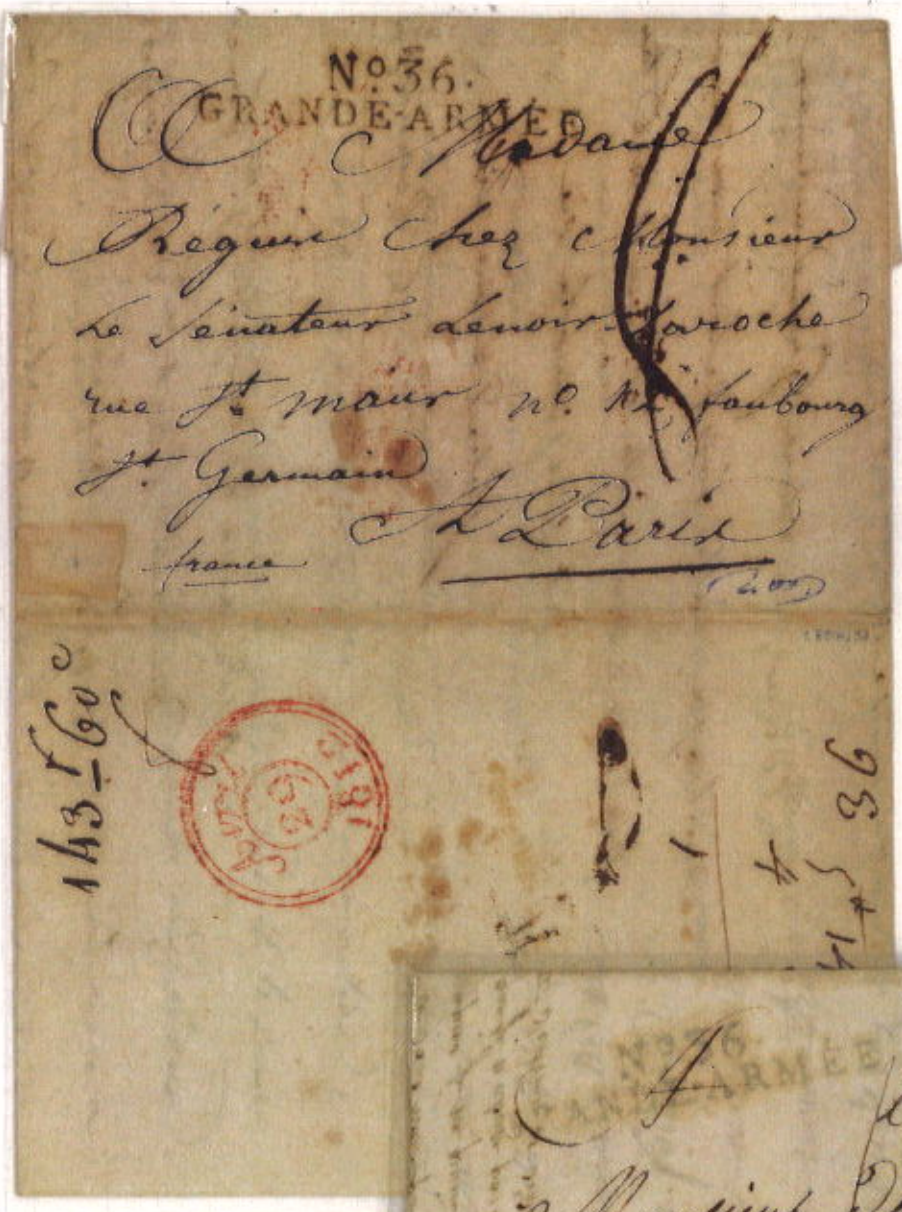 No. 36.
GRANDE-ARMÉE
A Madame
Réguin Chez Monsieur
Le Sénateur Lenoir Laroche
rue St. maur no. faubourg
St. Germain
A Paris
france
143 f 60 c
1812
29
36
4
1
No. 36.
GRANDE-ARMÉE
A
Monsieur